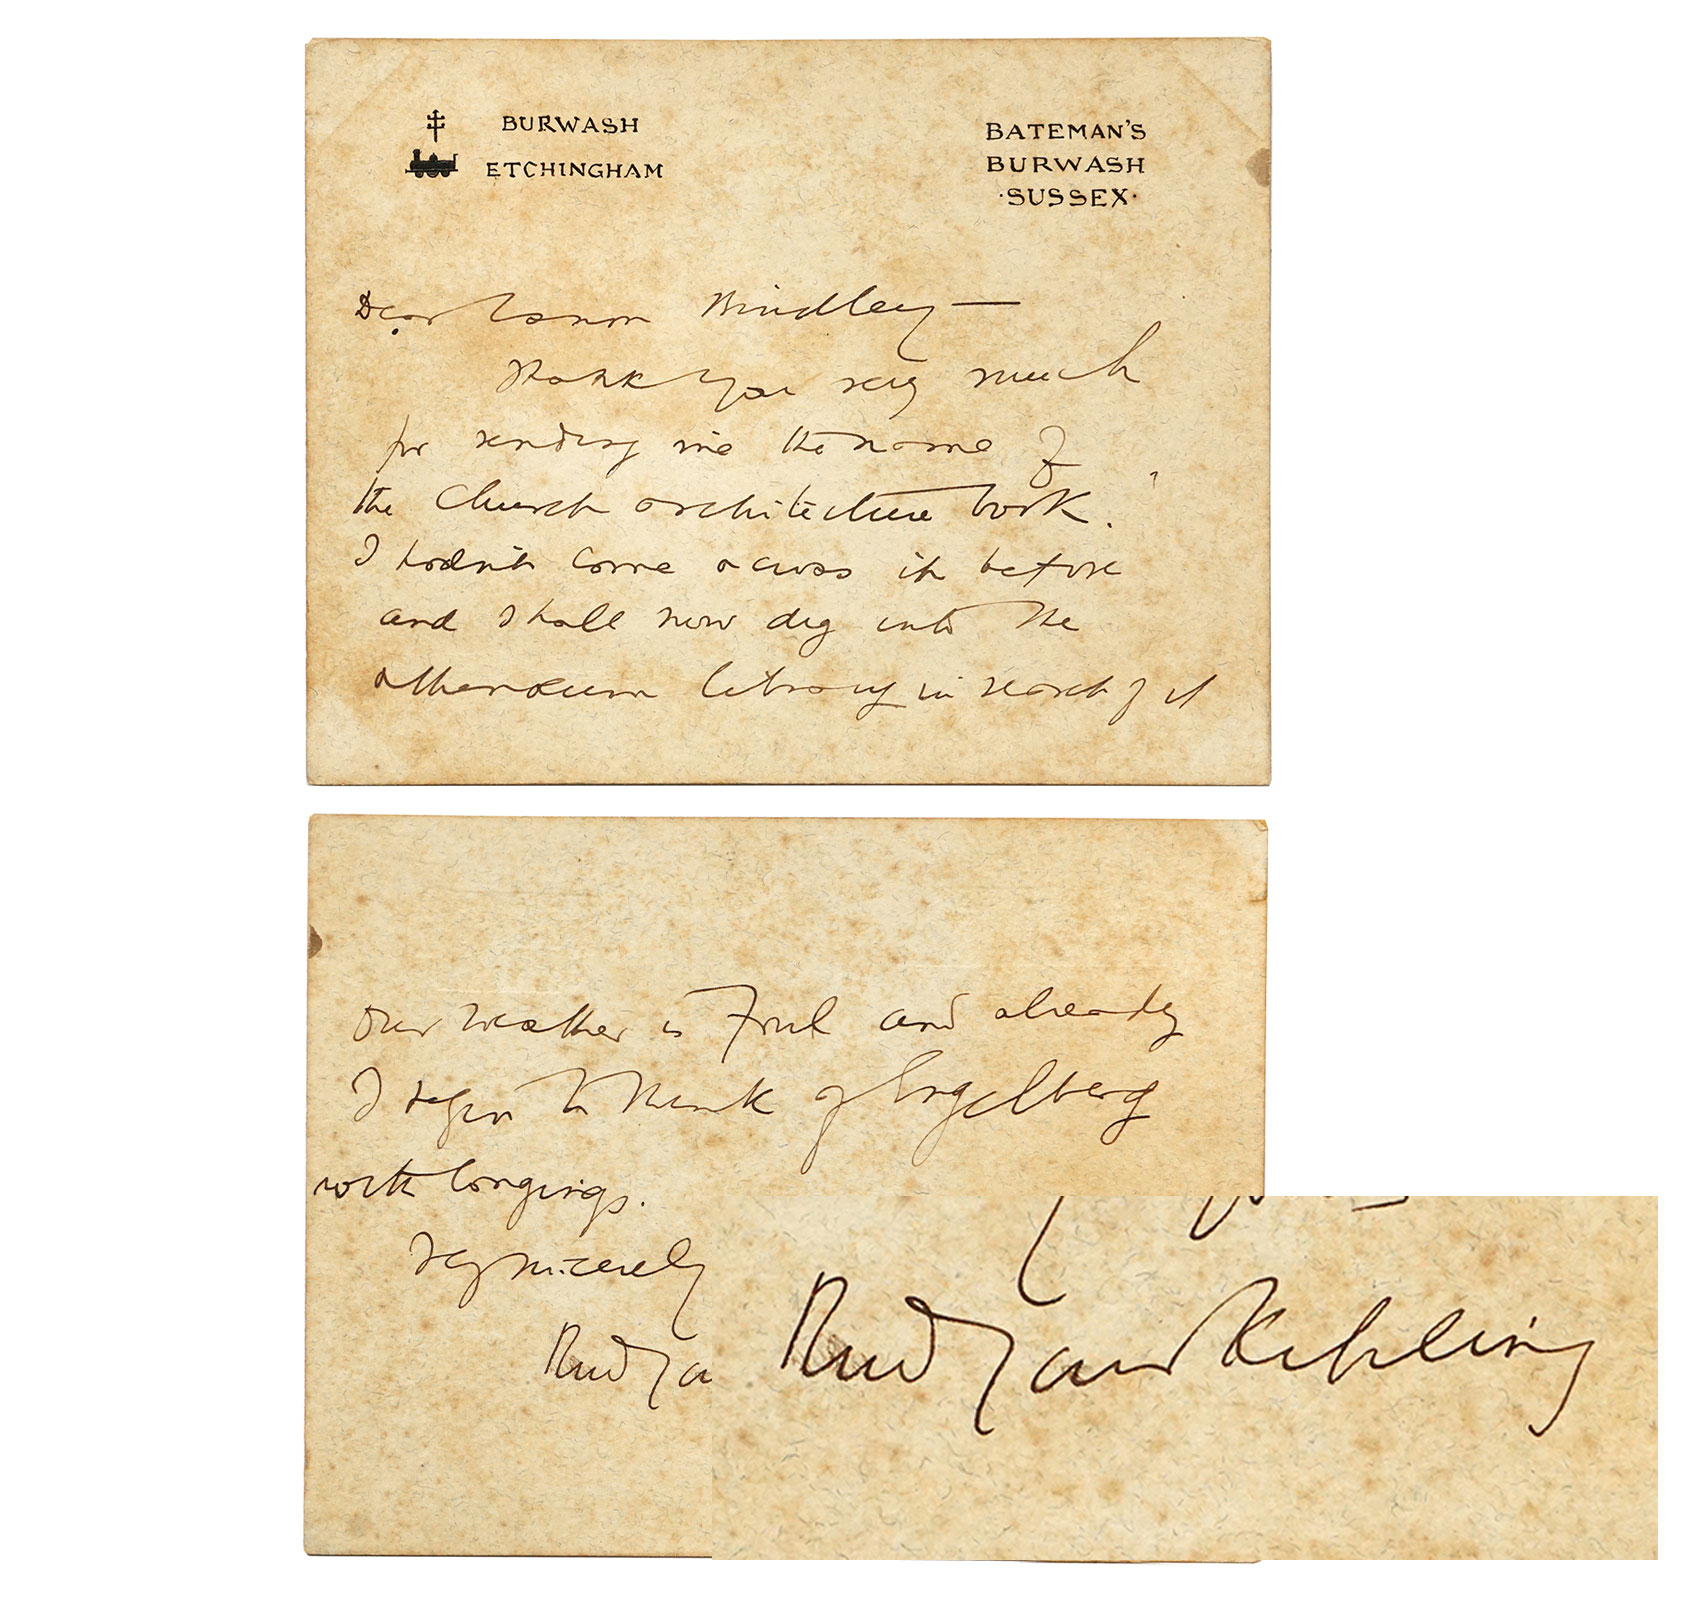 BURWASH
ETCHINGHAM
BATEMAN'S
BURWASH
·SUSSEX·
Dear Canon Bindley —
Thank you very much
for sending me the name of
the Church architecture book.
I hadn't come across it before
and shall now dig into the
Athenaeum library in search of it
Our weather is foul and already
I begin to think of Engelberg
with longings.
Very sincerely
Rudya
Rudyard Kipling